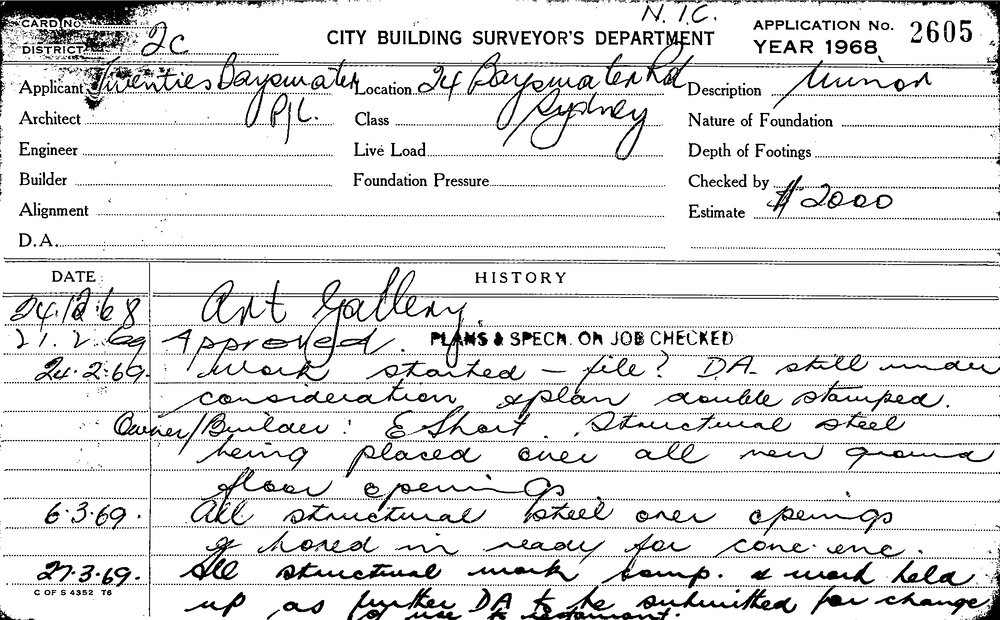 N.I.C.
CARD No.
DISTRICT 2c
CITY BUILDING SURVEYOR'S DEPARTMENT
APPLICATION No. 2605
YEAR 1968
Applicant Twenties Bayswater P/L.
Location 24 Bayswater Rd Sydney
Description Minor
Architect
Class
Nature of Foundation
Engineer
Live Load
Depth of Footings
Builder
Foundation Pressure
Checked by
Alignment
Estimate $2000
D.A.
DATE HISTORY
24.12.68 Art Gallery.
21.2.69 Approved. PLANS & SPECN. ON JOB CHECKED
24.2.69. Work started - file? DA still under
consideration & plan double stamped.
Owner/Builder: E Short. Structural steel
being placed over all new ground
floor openings
6.3.69. All structural steel over openings
& in ready for conc. enc.
27.3.69. All structural work comp. & work held
up as further DA to be submitted for change
of use to restaurant.
C OF S 4352 T6